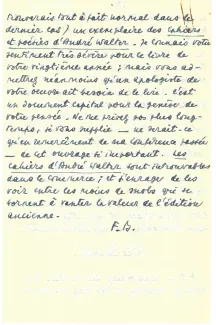 trouverais tout à fait normal dans le
dernier cas) un exemplaire des Cahiers
et poésies d'André Walter. Je connais votre
sentiment très sévère pour le livre de
votre vingtième année ; mais vous ad-
mettrez néanmoins qu'un apologiste de
votre œuvre ait besoin de le lire. C'est
un document capital pour la genèse de
votre pensée. Ne me privez pas plus long-
temps, je vous supplie — ne serait-ce
qu'en remerciement de ma conférence passée
— de cet ouvrage si important. Les
Cahiers d'André Walter sont introuvables
dans le commerce ; et j'enrage de les
voir entre les mains de snobs qui se
bornent à vanter la valeur de l'édition
ancienne.
F. B.